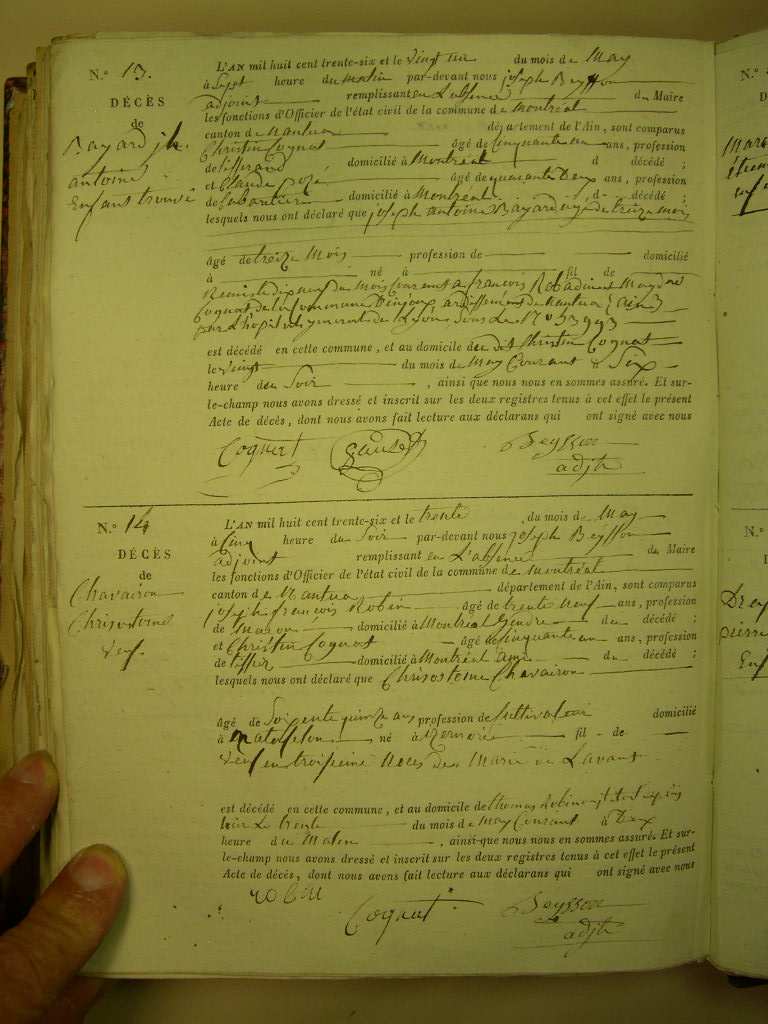 N.° 13.
DÉCÈS
de
Bayard jh.
antoine
Enfans trouvé
L'AN mil huit cent trente-six et le vingt un du mois de May
à Sept heure du matin par-devant nous joseph Beysson
adjoint remplissant en L'absence du Maire
les fonctions d'Officier de l'état civil de la commune de montréal
canton de Nantua département de l'Ain, sont comparus
Christin Cognat âgé de cinquante un ans, profession
de tisserand domicilié à Montréal d décédé ;
et Claude âgé de quarante Deux ans, profession
de domicilié à Montréal d décédé ;
lesquels nous ont déclaré que joseph antoine Bayard agé de treize mois
âgé de treize Mois profession de domicilié
à né à fil de
Remis le dix neuf du mois Courent a francois
Cognat de la Commune ardissement de Nantua (ain)
par L'hopital general de Lyon Sous Le N°
est décédé en cette commune, et au domicile du dit Christin Cognat
le vingt du mois de May Courant à Six
heure du Soir , ainsi que nous nous en sommes assuré. Et sur-
le-champ nous avons dressé et inscrit sur les deux registres tenus à cet effet le présent
Acte de décès, dont nous avons fait lecture aux déclarans qui ont signé avec nous
Beysson
adjt
N.° 14
DÉCÈS
de
Chavairon
Chrisostome
veuf.
L'AN mil huit cent trente-six et le trente du mois de May
à cinq heure du Soir par-devant nous joseph Beysson
adjoint remplissant en L'absence du Maire
les fonctions d'Officier de l'état civil de la commune de montréal
canton de Nantua département de l'Ain, sont comparus
joseph francois Robin âgé de trente neuf ans, profession
de Macon domicilié à Montréal Gendre du décédé ;
et Christin Cognat âgé de cinquante un ans, profession
de tissier domicilié à Montréal ami du décédé ;
lesquels nous ont déclaré que Chrisostome Chavairon
âgé de Soixente quinze ans profession de Cultivateur domicilié
à Matafelon né à fil de
veuf en troisieme Noces de Marie Lavant
est décédé en cette commune, et au domicile de thomas Robin
le trente du mois de May Courant à Deux
heure du Matin , ainsi que nous nous en sommes assuré. Et sur-
le-champ nous avons dressé et inscrit sur les deux registres tenus à cet effet le présent
Acte de décès, dont nous avons fait lecture aux déclarans qui ont signé avec nous
robin
Cognat
Beysson
adjt